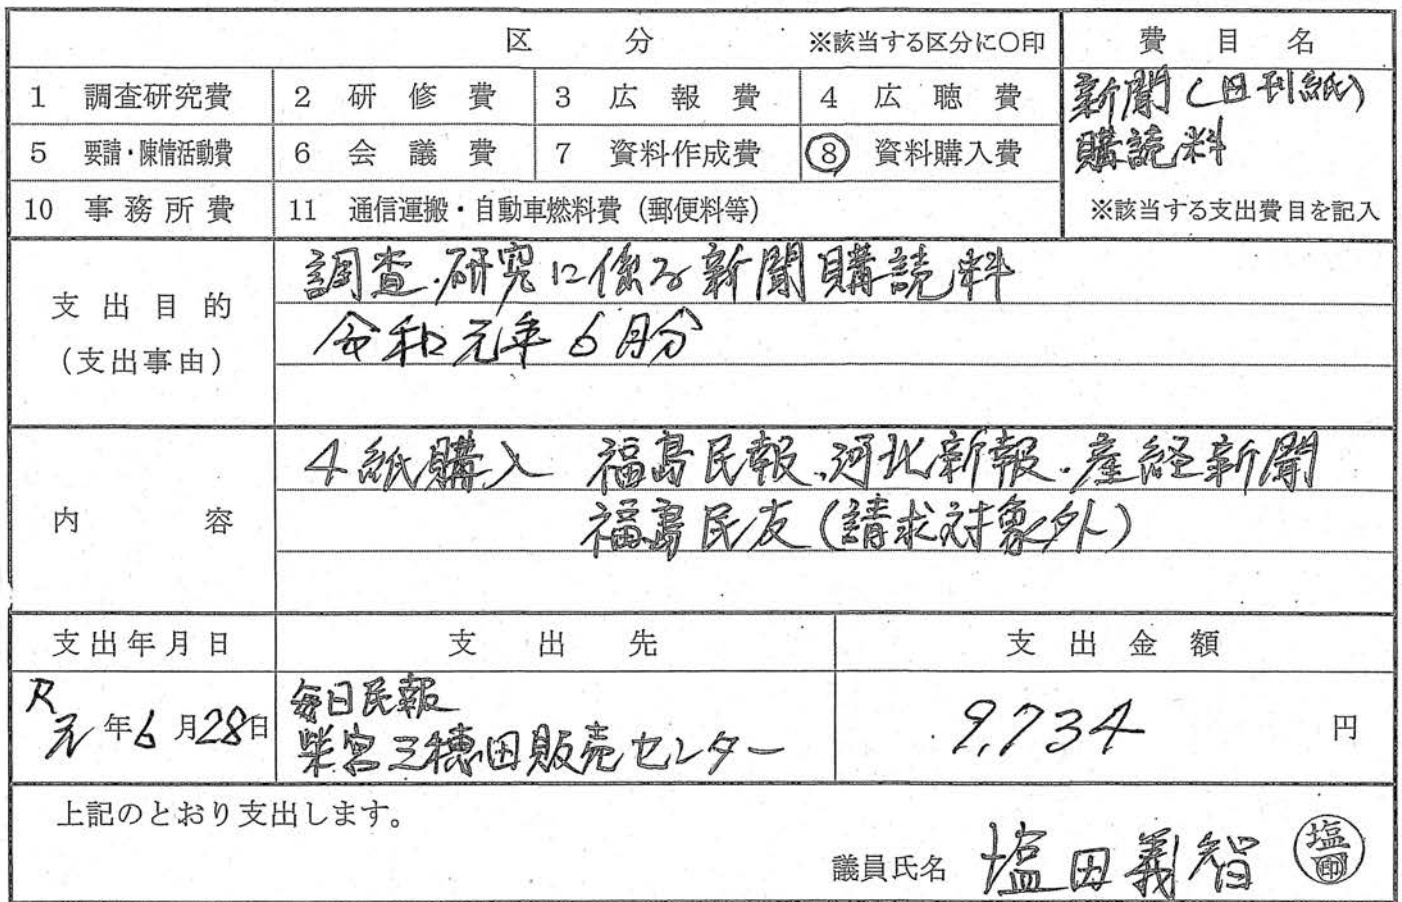 区分 ※該当する区分に○印 費目名
1 調査研究費 2 研修費 3 広報費 4 広聴費 新聞(日刊紙)
5 要請・陳情活動費 6 会議費 7 資料作成費 ⑧ 資料購入費 購読料
10 事務所費 11 通信運搬・自動車燃料費(郵便料等) ※該当する支出費目を記入
支出目的
(支出事由)
調査・研究に係る新聞購読料
令和元年6月分
内容
4紙購入 福島民報、河北新報・産経新聞
福島民友(請求対象外)
支出年月日 支出先 支出金額
R元年6月28日
毎日民報
柴宮三穂田販売センター
9,734円
上記のとおり支出します。
議員氏名 塩田義智 塩印